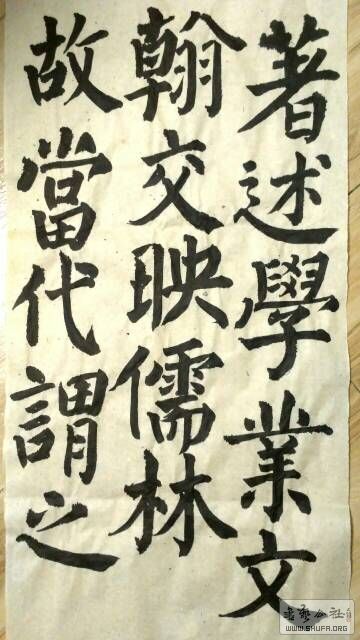 著述學業文
翰交映儒林
故當代謂之
WWW.SHUFA.ORG